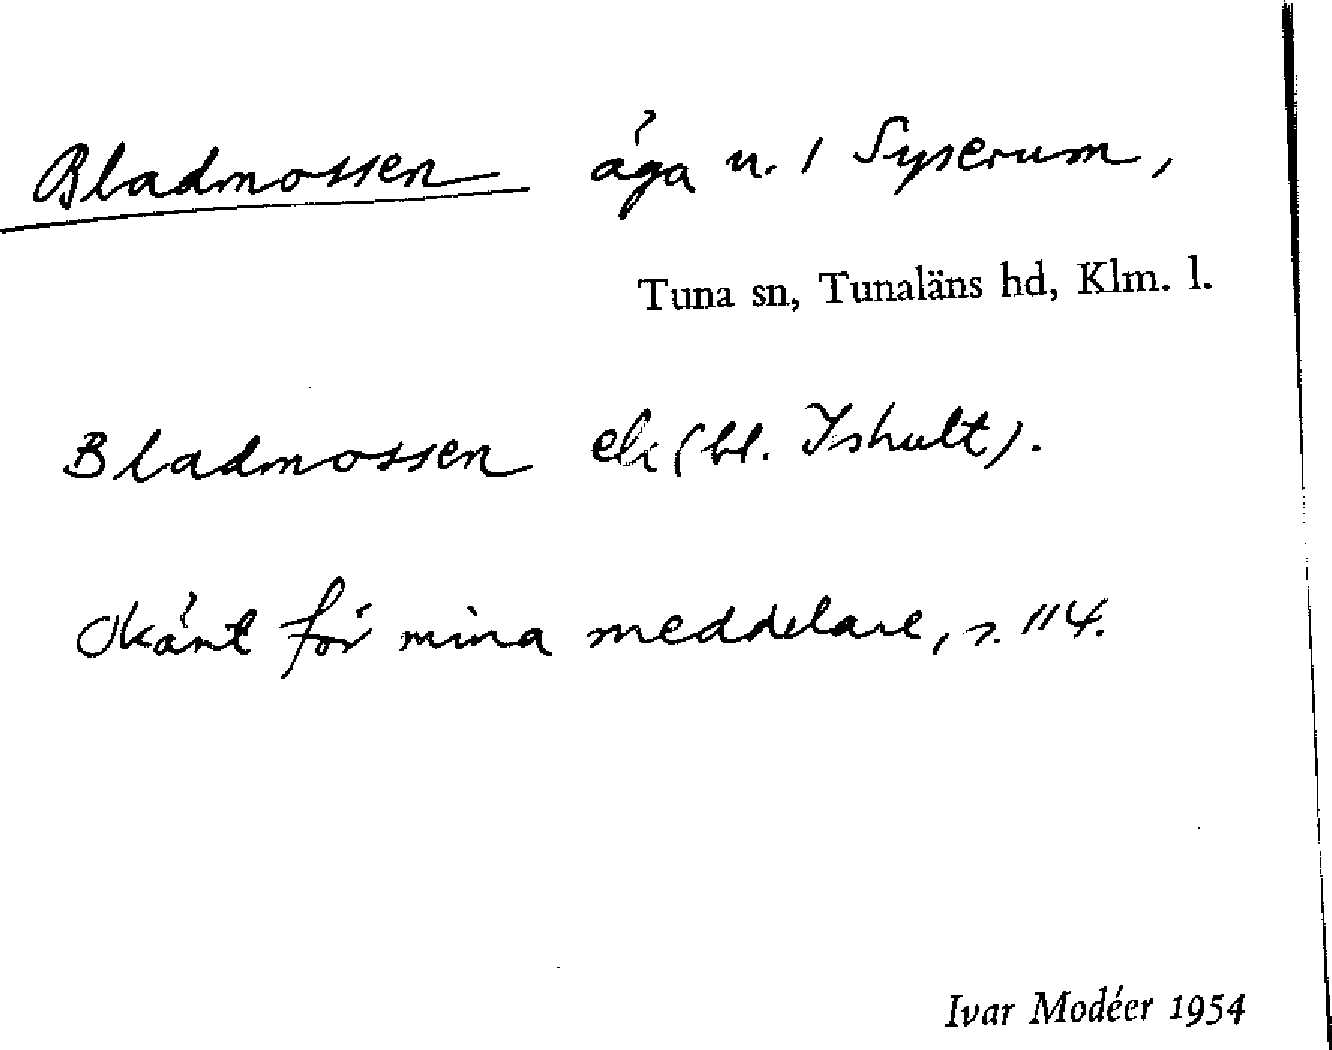 Bladmossen äga u. / Syserum,
Tuna sn, Tunaläns hd, Klm. l.
Bladmossen ek (bl. Ishult).
Okänt för mina meddelare, s. 114.
Ivar Modéer 1954